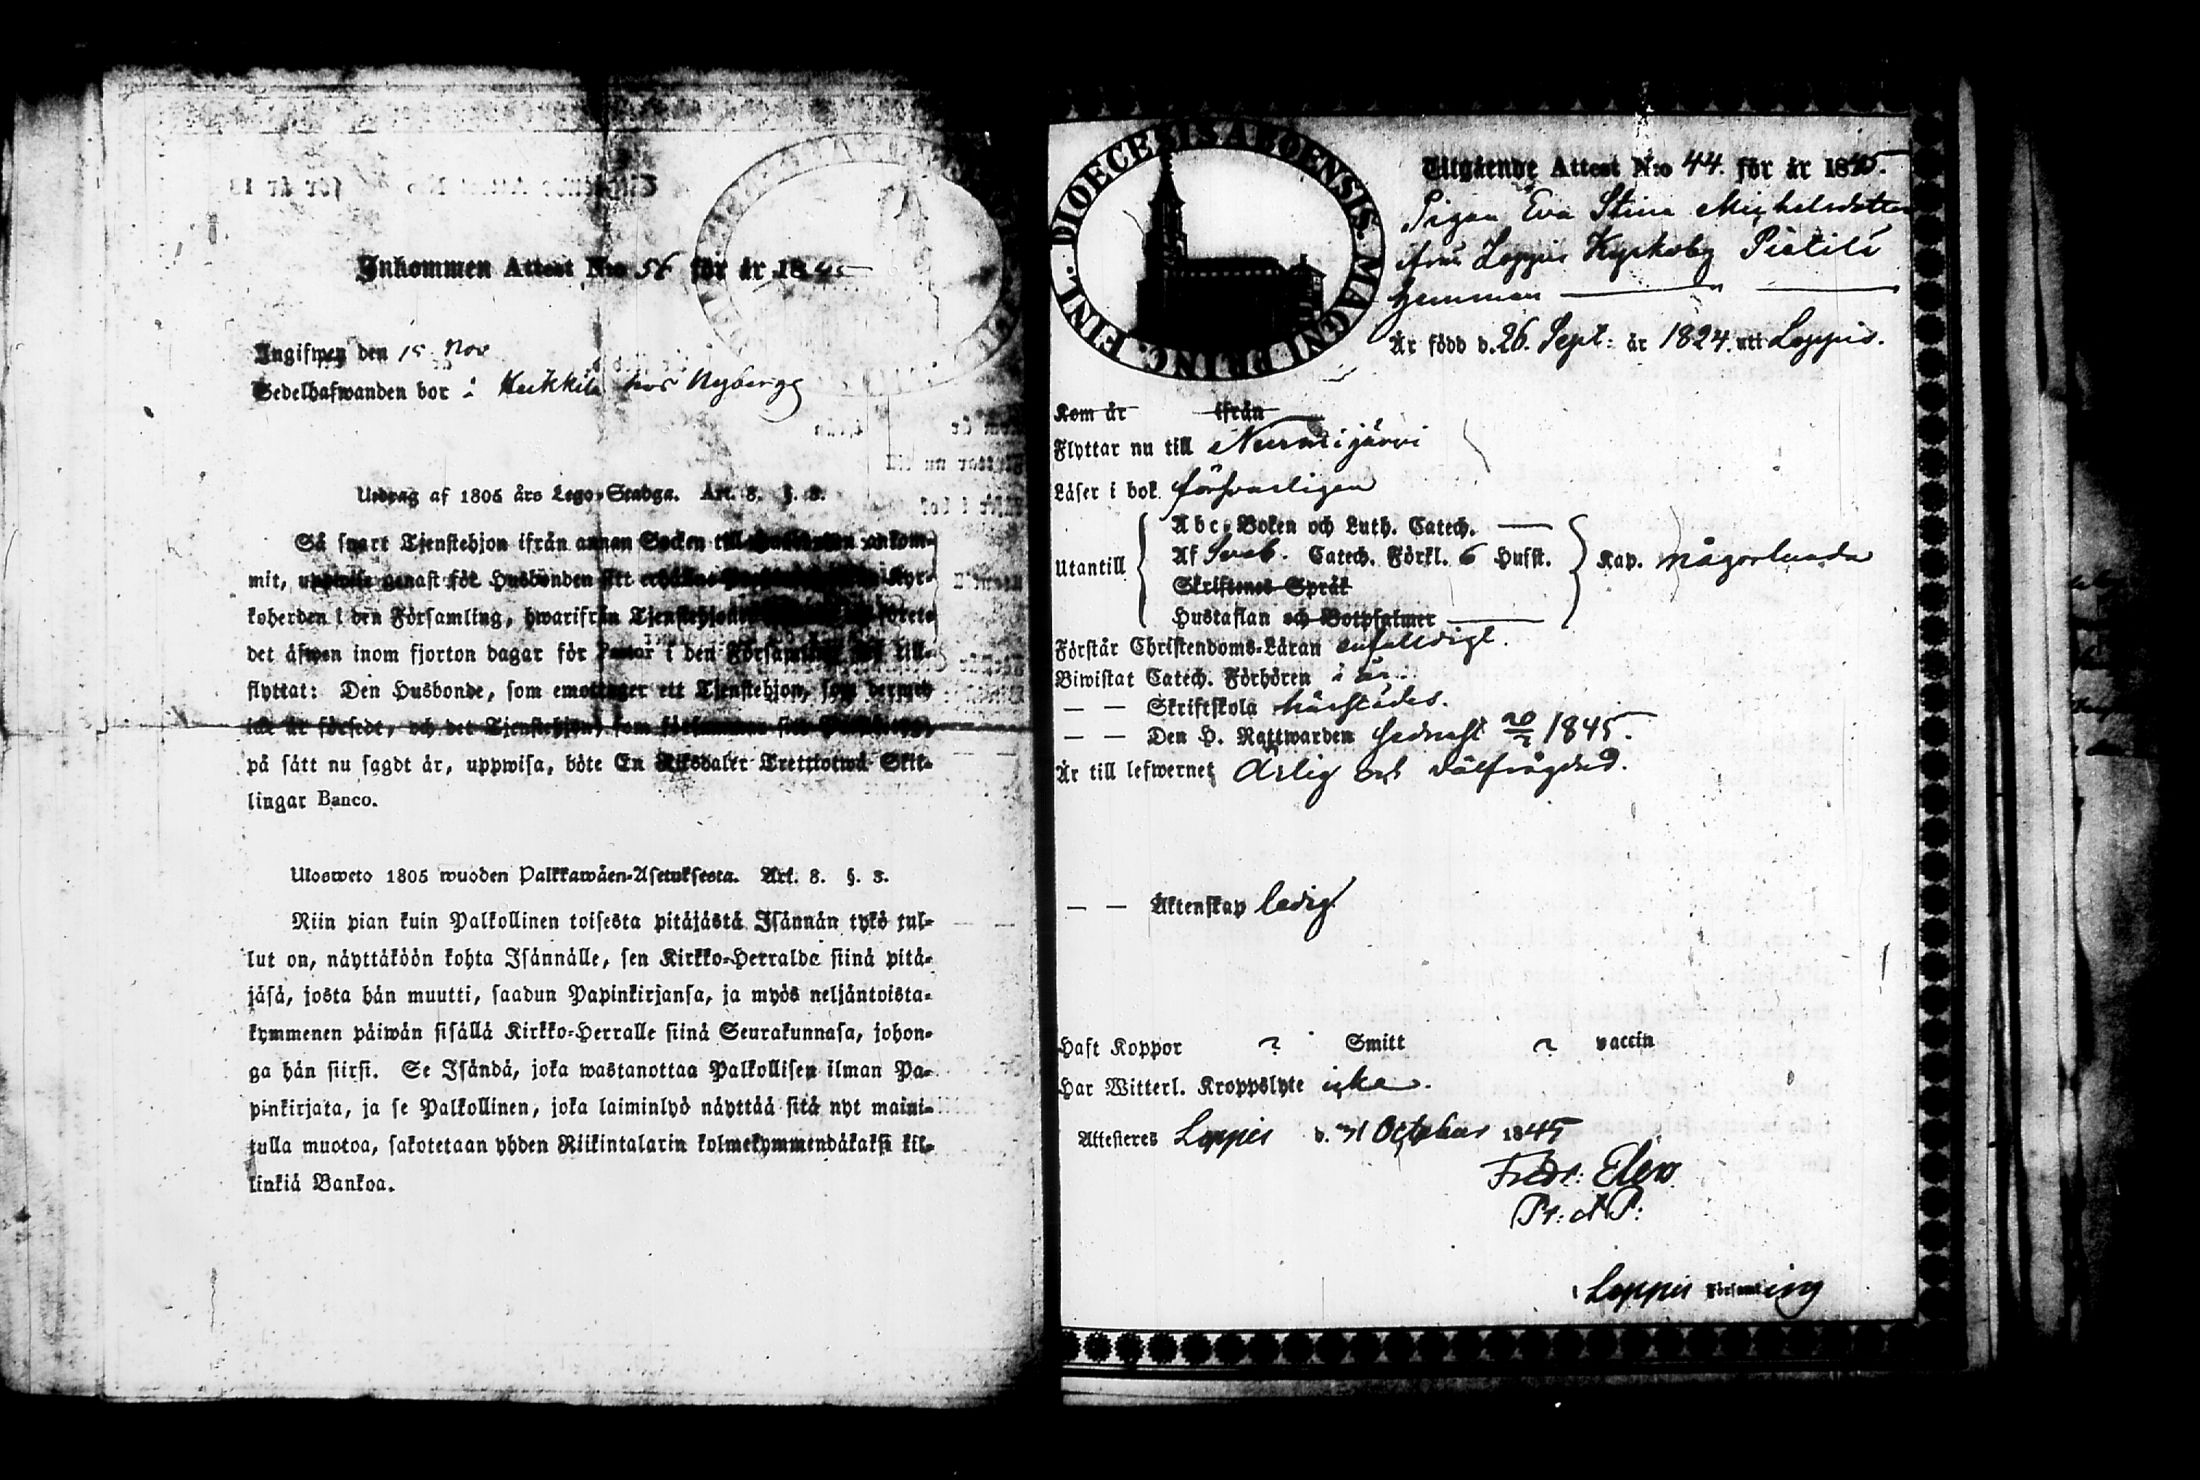 Inkommen Attest N:o 56 för år 1845
Ingifwen den 15 Nov
Sedelhafwanden bor i Keikkilä hos Nyberg
Utdrag af 1805 års Lego-Stadga. Art. 8. §. 3.
Så snart Tjenstehjon ifrån annan Socken till Husbonden ankom-
mit, uppwise genast för Husbonden sitt erhållne Kyr-
koherden i den Församling, hwarifrån Tjenstehjonet förete
det äfwen inom fjorton dagar för Pastor i den Församling till-
flyttat: Den Husbonde, som emottager ett Tjenstehjon, som dermed
icke är försedt, och det Tjenstehjon, som försummar sitt
på sätt nu sagdt är, uppwisa, böte En Riksdaler Trettiotwå Skil-
lingar Banco.
Ulosweto 1805 wuoden Palkkawäen-Asetuksesta. Art. 8. §. 3.
Niin pian kuin Palkollinen toisesta pitäjästä Isännän tykö tul-
lut on, näyttäköön kohta Isännälle, sen Kirkko-Herralde siinä pitä-
jäsä, josta hän muutti, saadun Papinkirjansa, ja myös neljäntoista-
kymmenen päiwän sisällä Kirkko-Herralle siinä Seurakunnasa, johon-
ga hän siirsi. Se Isändä, joka wastanottaa Palkollisen ilman Pa-
pinkirjata, ja se Palkollinen, joka laiminlyö näyttää sitä nyt maini-
tulla muotoa, sakotetaan yhden Riikintalarin kolmekymmendäkaksi kil-
linkiä Bankoa.
DIOECESIS ABOENSIS MAGNI PRINC. FINL.
Utgående Attest N:o 44. för år 1845.
Pigan Eva Stina Michelsdotter
ifrån Loppis Kyrkoby Pietilä
hemman
Är född d. 26. Sept: år 1824. uti Loppis.
Kom år ifrån
Flyttar nu till Nurmijärvi
Läser i bok försvarligen
Abc-Boken och Luth. Catech.
Utantill Af Sveb. Catech. Förkl. 6 Hufst. Kap. någorlunda
Skriftenes Språk
Hustaflan och Botpsalmer
Förstår Christendoms-Läran enfaldigt.
Biwistat Catech. Förhören i år.
— — Skriftskola härstädes.
— — Den H. Nattwarden sednast 20/7 1845.
Är till lefwernet Ärlig och välfrägdad.
— — Äktenskap ledig
Haft Koppor ? Smitt ? vaccin
Har Witterl. Kroppslyte icke.
Attesteres Loppis d. 31 October 1845
Fredr: Elers
Pr: A P:
i Loppis Församling